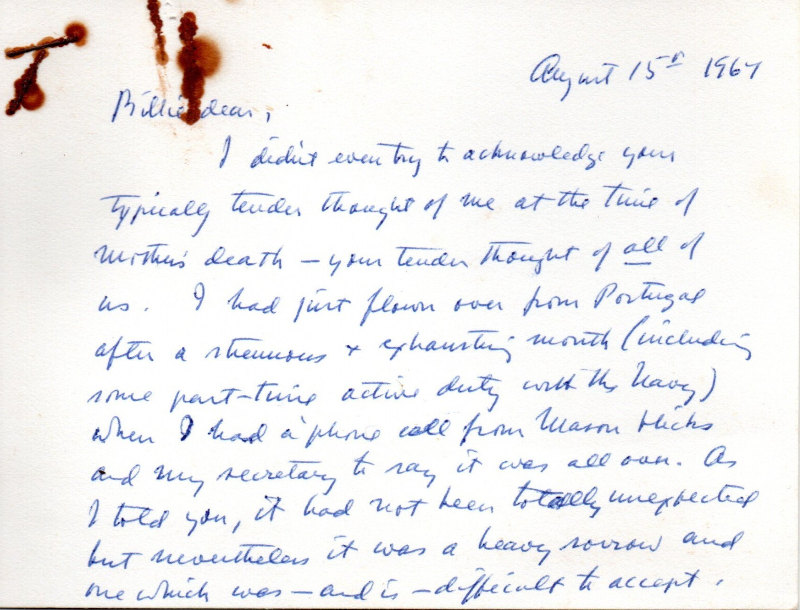 August 15th 1967
Billie dear,
I didn't even try to acknowledge your
typically tender thought of me at the time of
Mother's death – your tender thought of all of
us. I had just flown over from Portugal
after a strenuous + exhausting month (including
some part-time active duty with the Navy)
when I had a phone call from Mason Hicks
and my secretary to say it was all over. As
I told you, it had not been totally unexpected
but nevertheless it was a heavy sorrow and
one which was – and is – difficult to accept.